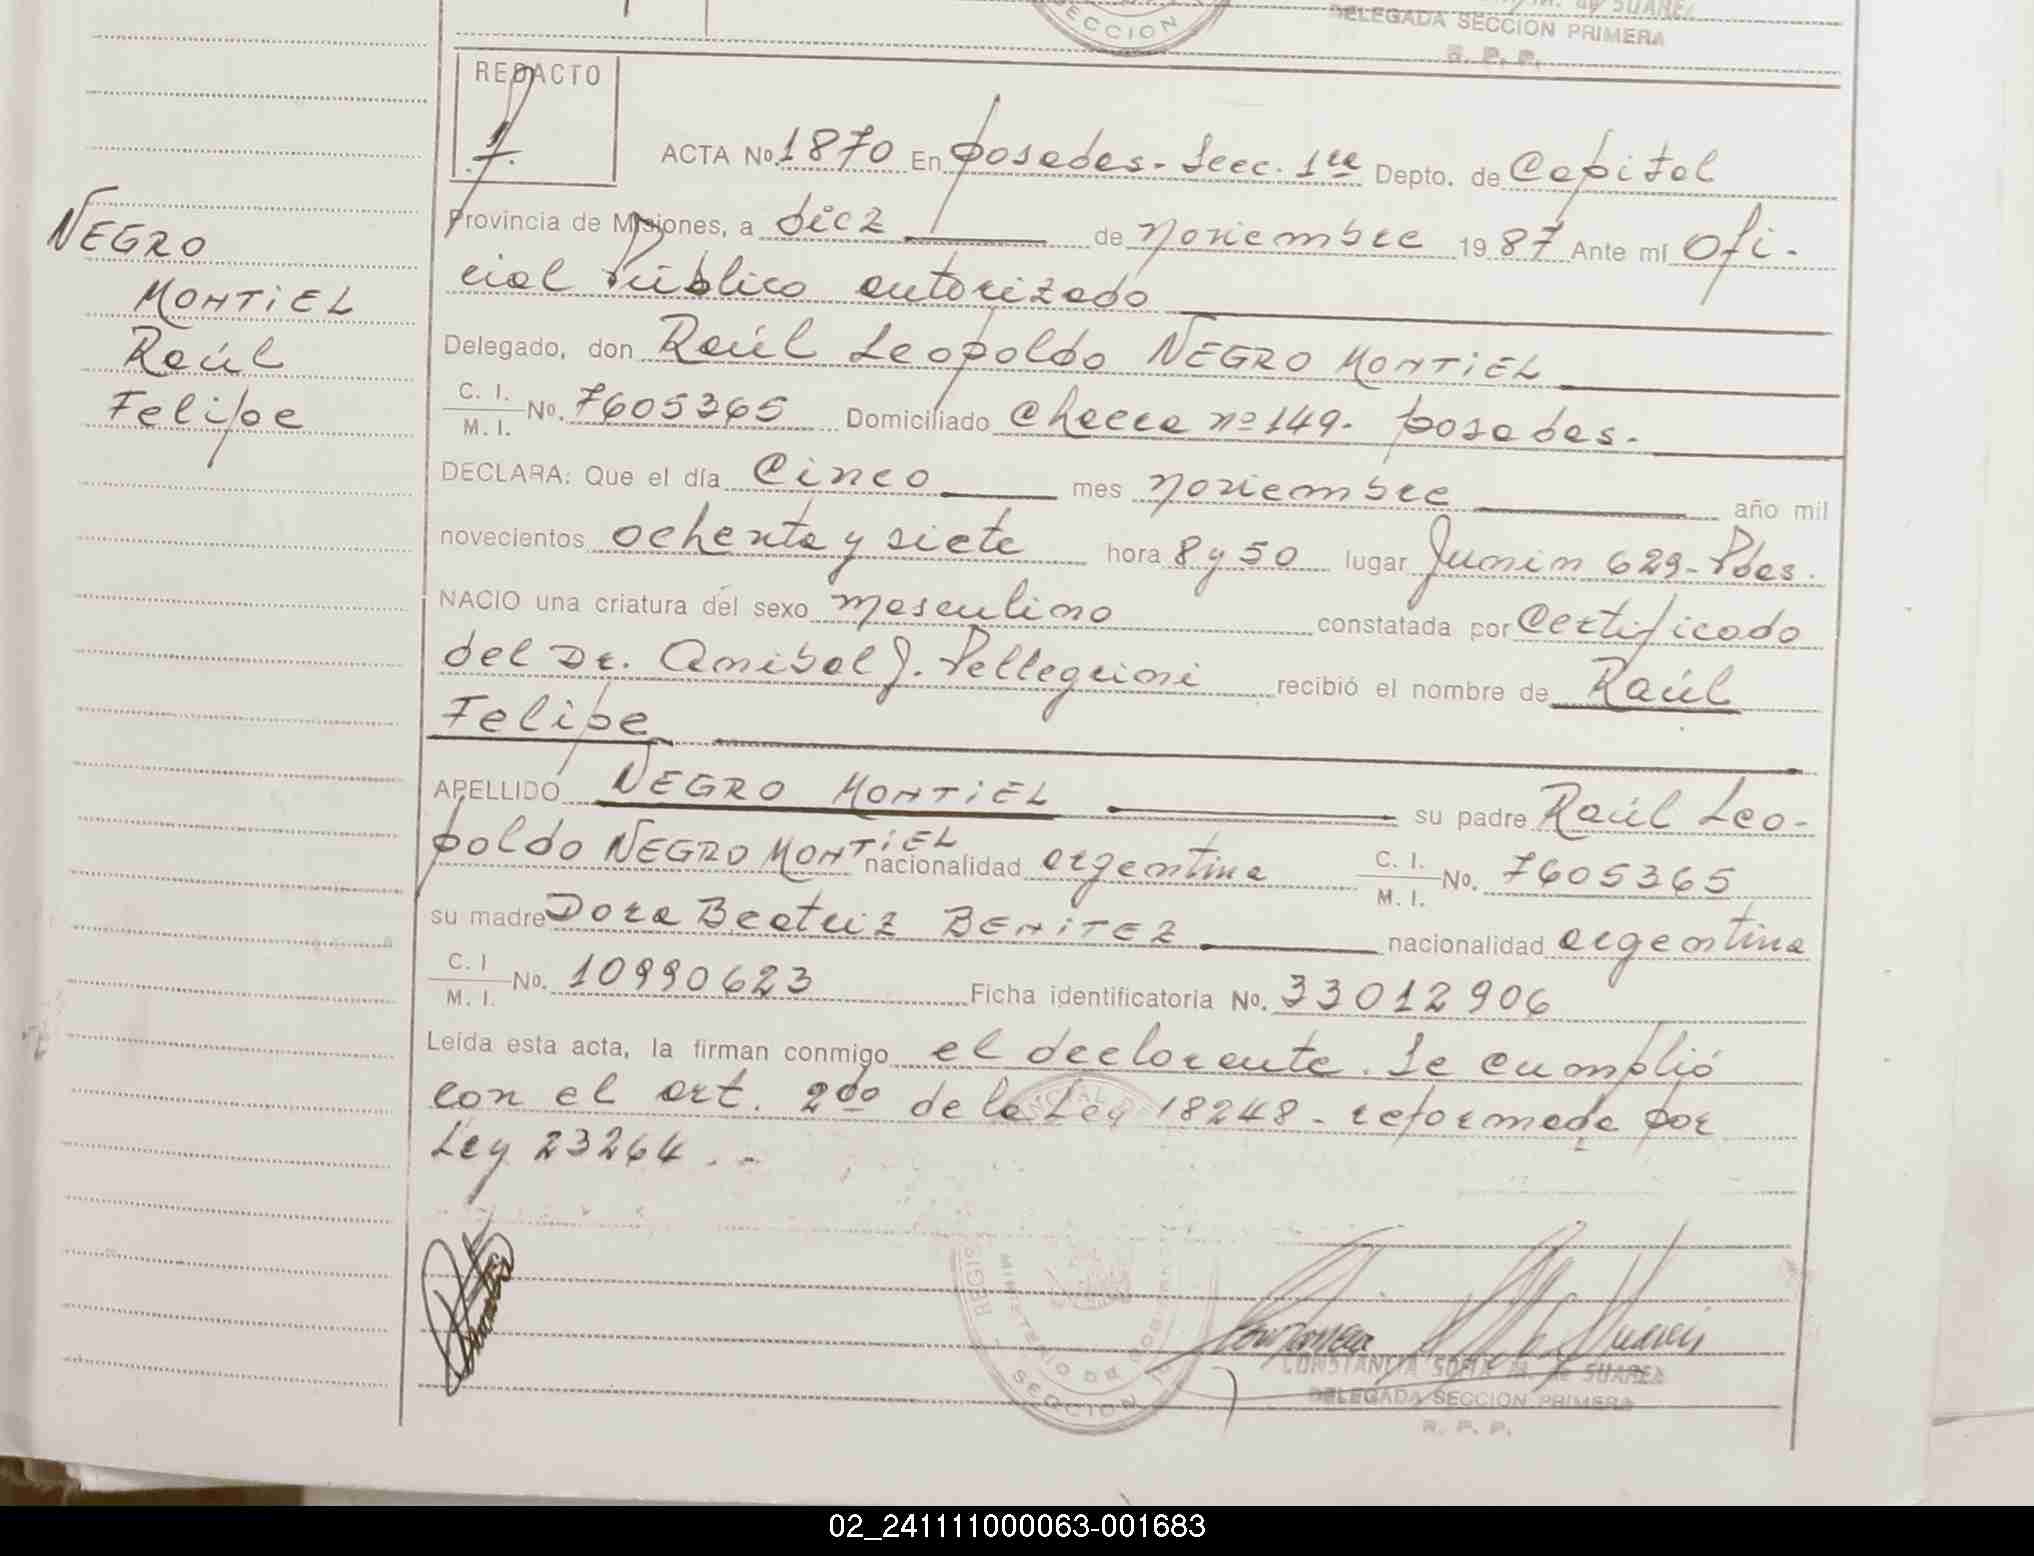 SECCION
DELEGADA SECCION PRIMERA
R. P. P.
REDACTO
NEGRO
MONTIEL
Raúl
Felipe
ACTA No. 1870 En Posadas - Secc. 1ra Depto. de Capital
Provincia de Misiones, a diez de noviembre 1987 Ante mí Ofi-
cial Público autorizado
Delegado, don Raúl Leopoldo NEGRO MONTIEL
C. I. / M. I. No. 7605365 Domiciliado Chacra nº 149. Posadas.
DECLARA: Que el día Cinco mes noviembre año mil
novecientos ochenta y siete hora 8 y 50 lugar Junin 629 - Pdas.
NACIO una criatura del sexo masculino constatada por Certificado
del Dr. Anibal J. Pellegrini recibió el nombre de Raúl
Felipe
APELLIDO NEGRO MONTIEL su padre Raúl Leo-
poldo NEGRO MONTIEL nacionalidad argentina C. I. / M. I. No. 7605365
su madre Dora Beatriz BENITEZ nacionalidad argentina
C. I / M. I. No. 10990623 Ficha identificatoria No. 33012906
Leída esta acta, la firman conmigo el declarante. Se cumplió
con el art. 2do de la Ley 18248 - reformada por
Ley 23264 . -
MINISTERIO DE GOBIERNO
SECCION 1
CONSTANCIA SOFIA M. de SUAREZ
DELEGADA SECCION PRIMERA
R. P. P.
02_241111000063-001683